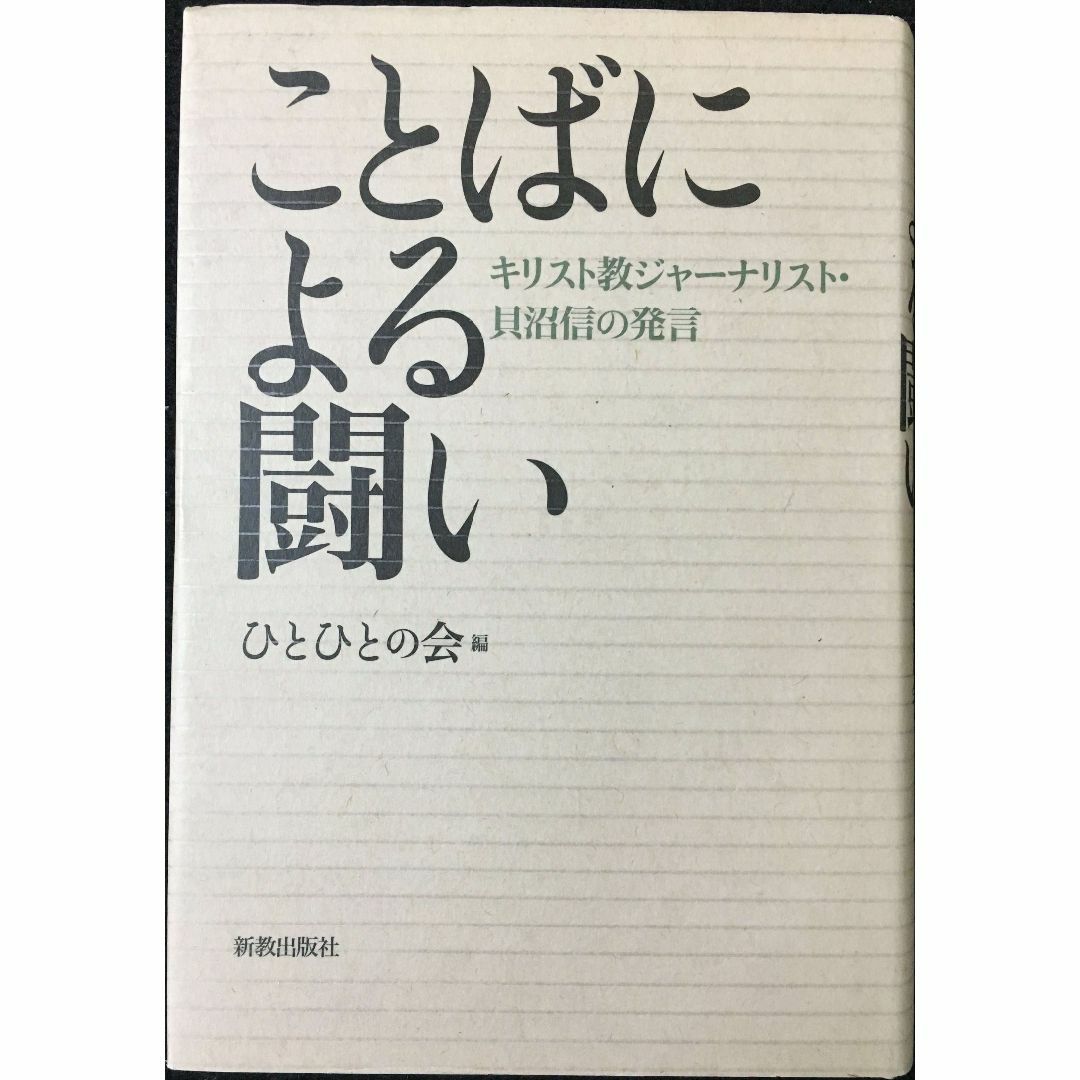 ことばに
よる
闘い
キリスト教ジャーナリスト・
貝沼信の発言
ひとひとの会 編
新教出版社